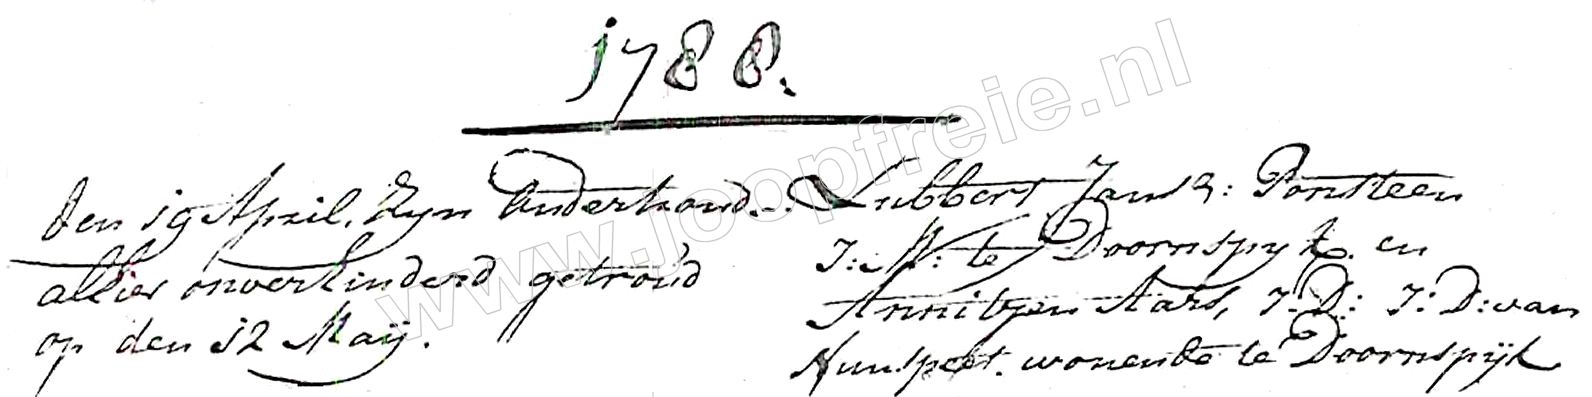 1788.
den 19 April, Zyn Ondertroud.
alhier onverhinderd getroud
op den 12 Maij.
Lubbert Jans: Ponsteen
J: M: te Doornspyk. en
Annitjen Aars, J. D: J: D: van
Nunspeet. wonende te Doornspijk
www.joopfreie.nl